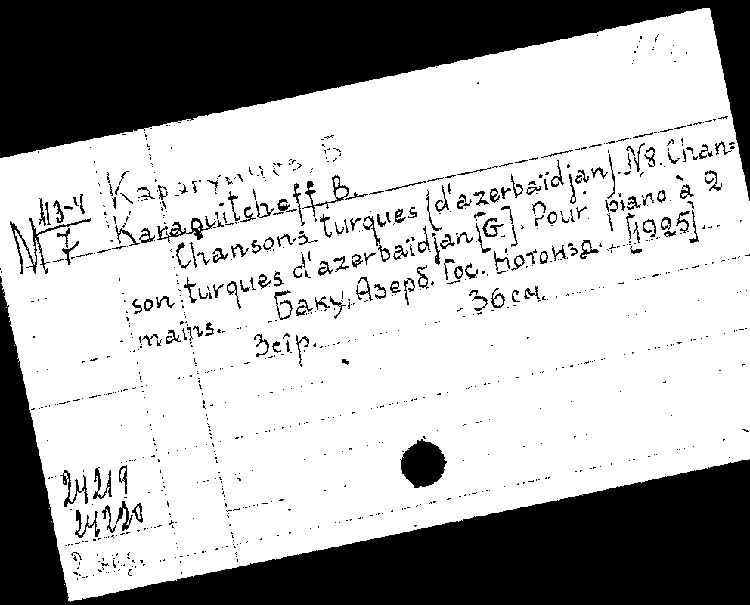 Карагичев, Б
М 113-4/7
Karaguitcheff, B.
Chansons turques [d'azerbaïdjan]. N8. Chan=
son turques d'azerbaïdjan [G]. Pour piano à 2
mains. Баку, Азерб. Гос. Нотоизд. [1925].
3стр. 36см.
24219
24220
2 экз.